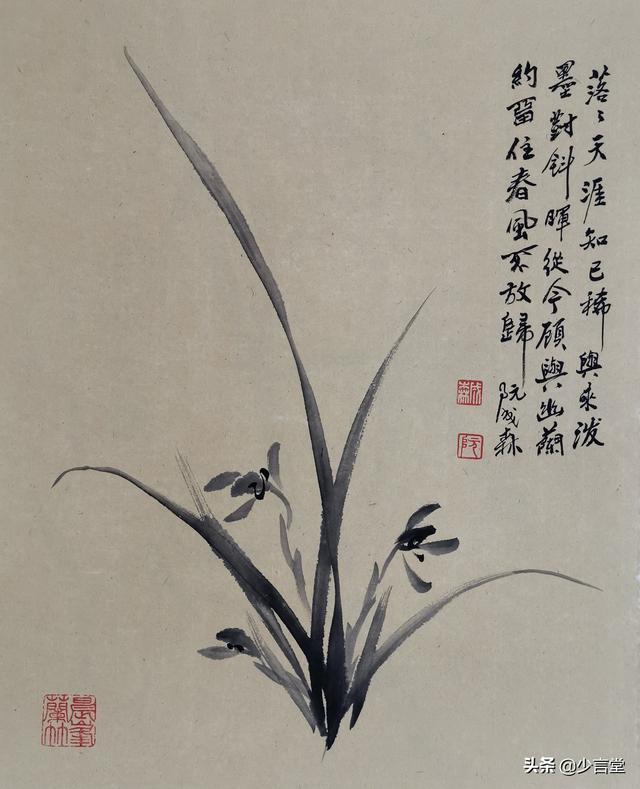 落〻天涯知己稀興來潑
墨對斜暉從今願與幽蘭
約留住春風不放歸
阮成森
成森
阮
头条 @少言堂